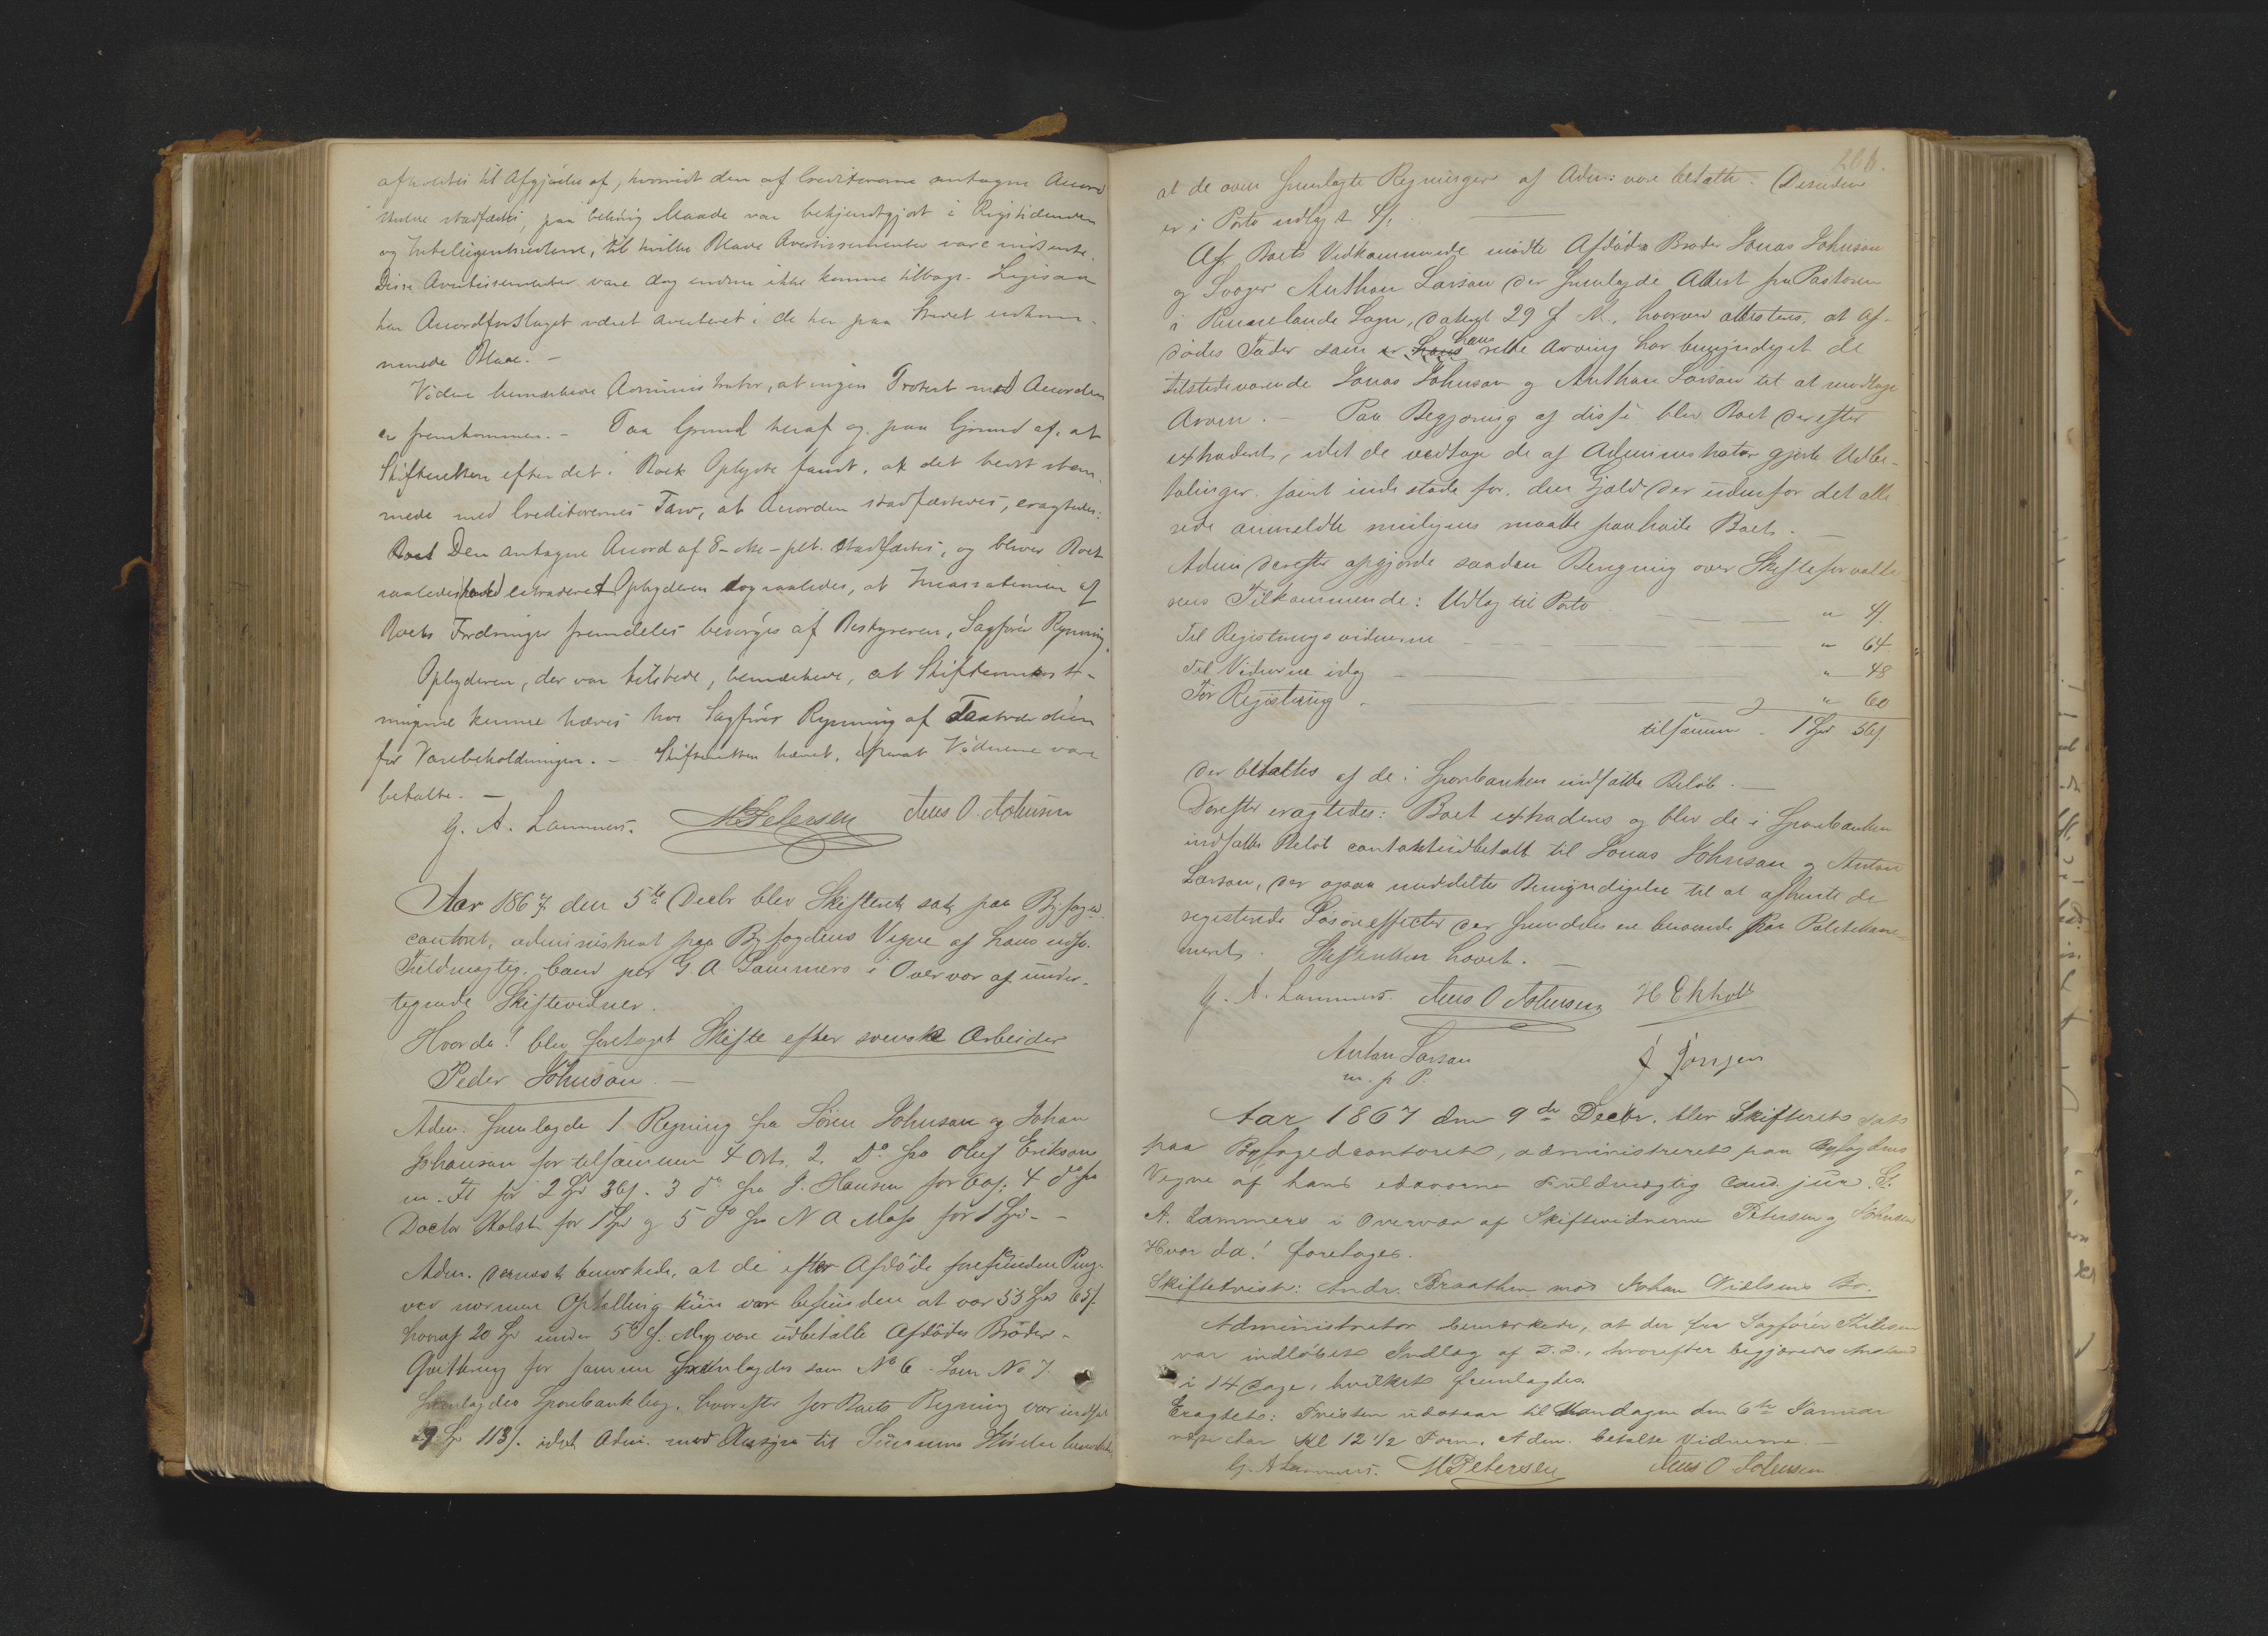 afholdes til Afgjørelse af, hvorvidt den af Creditorerne antagne Accord
skulde stadfæstes, paa behørig Maade var bekjendtgjort i Rigstidenden
og Intelligentssedlerne, til hvilke Blade Avertissementer vare indsendte.
Disse Avertissementer vare dog endnu ikke komne tilbage. Ligesaa
har Accordforslaget været averteret i de her paa Stedet udkom-
mende Blade. —
Videre bemærkede Administrator, at ingen Protest mod Accorden
er fremkommen. — Paa Grund heraf og paa Grund af, at
Skifteretten efter det i Boet Oplyste fandt, at det bedst stem-
mede med Creditorernes Tarv, at Accorden stadfæstedes, eragtedes:
Den antagne Accord af 8 - otte - pct. stadfæstes, og bliver Boet
saaledes extraderet Opbyderen dog saaledes, at Incassationen af
Boets Fordringer fremdeles besørges af Bestyreren, Sagfører Rynning
Opbyderen, der var tilstede, bemærkede, at Skifteomkost-
ningerne kunne hæves hos Sagfører Rynning af
for Varebeholdningen. — Skifteretten hævet, Vidnerne vare
betalte. —
G. A. Lammers. M Petersen Jens O. Johnsen
Aar 1867 den 5te Decbr blev Skifteret sat paa Byfoged-
contoret, administreret paa Byfogdens Vegne af hans edsv.
Fuldmægtig, cand jur G A Lammers i Overvær af under-
tegnede Skiftevidner.
Hvor da! blev foretaget Skifte efter svenske Arbeider
Peder Johnson. —
Adm. fremlagde 1 Regning fra Søren Johnson og Johan
Johanson for tilsammen 4 Ort, 2. Do fra Oluf Erikson
m. Fl for 2 Spd 36 s. 3 do fra J. Hansen for 60 s: 4 do fra
Doctor Holst for 1 Spd og 5 do fra N A Moss for 1 Spd. —
Adm. dernæst bemærkede, at de efter Afdøde forefundne Penge
ved nærmere Optælling kun vare befundne at være 53 Spd 65 s.
hvoraf 20 Spd under 5te f. M. vare udbetalte Afdødes Broder.
Qvittering for samme fremlagdes som No 6 - Som No 7.
fremlagdes Sparebankbog, hvorefter for Boets Regning var indsat
29 Sp 113 s. idet Adm. med Hensyn til Summens Størrelse bemærkede
266.
at de oven fremlagte Regninger af Adm: vare betalte. Desuden
er i Porto udlagt 4 s.
Af Boets Vedkommende mødte Afdødes Broder Jonas Johnson
og Svoger Anthon Larson der fremlagde Attest fra Pastoren
i Sogn, dateret 29 f. M., hvorved attesteres, at Af-
dødes Fader som er hans hans rette Arving har bemyndiget de
tilstedeværende Jonas Johnson og Anthon Larson til at modtage
Arven. — Paa Begjæring af disse blev Boet derefter
extraderet, idet de vedtage de af Administrator gjorte Udbe-
talinger, samt inde stode for, den Gjæld der udenfor det alle-
rede anmeldte muligens maatte paahvile Boet. —
Adm derefter opgjorde saadan Beregning over Skifteforvalte-
rens Tilkommende: Udlæg til Porto — " 4 s.
Til Registringsvidnerne — " 64
Til Vidnerne idag — " 48
For Registering — " 60
tilsammen - 1 Spd 56 s.
der betaltes af de i Sparebanken indsatte Beløb. —
Derefter eragtedes: Boet extraderes og blev de i Sparebanken
indsatte Beløb contant udbetalt til Jonas Johnson og Anton
Larson, der ogsaa meddeltes Bemyndigelse til at afhente de
registrerede Løsøreeffecter der fremdeles ere beroende paa Politikam-
meret. Skifteretten hævet. —
G. A. Lammers. Jens O Johnsen H Ekholt
Anton Larson
m. p P.
J Jonsen
Aar 1867 den 9de Decbr. blev Skifteret sat
paa Byfogedcontoret, administreret paa Byfogdens
Vegne af hans edsvorne Fuldmægtig cand. jur. G.
A. Lammers i Overvær af Skiftevidnerne Petersen og Johnsen
Hvor da! foretoges.
Skiftetvist: Andr. Braathen mod Johan Nielsens Bo.
Administrator bemærkede, at der fra Sagfører
var indløbet Indlæg af D. D., hvorefter begjæredes Anstand
i 14 Dage, hvilket fremlagdes.
Eragtet: Fristen udstaar til Mandagen den 6te Januar
næste Aar Kl 12 1/2 Form. Adm. betalte Vidnerne. —
G. A Lammers. M Petersen Jens O Johnsen